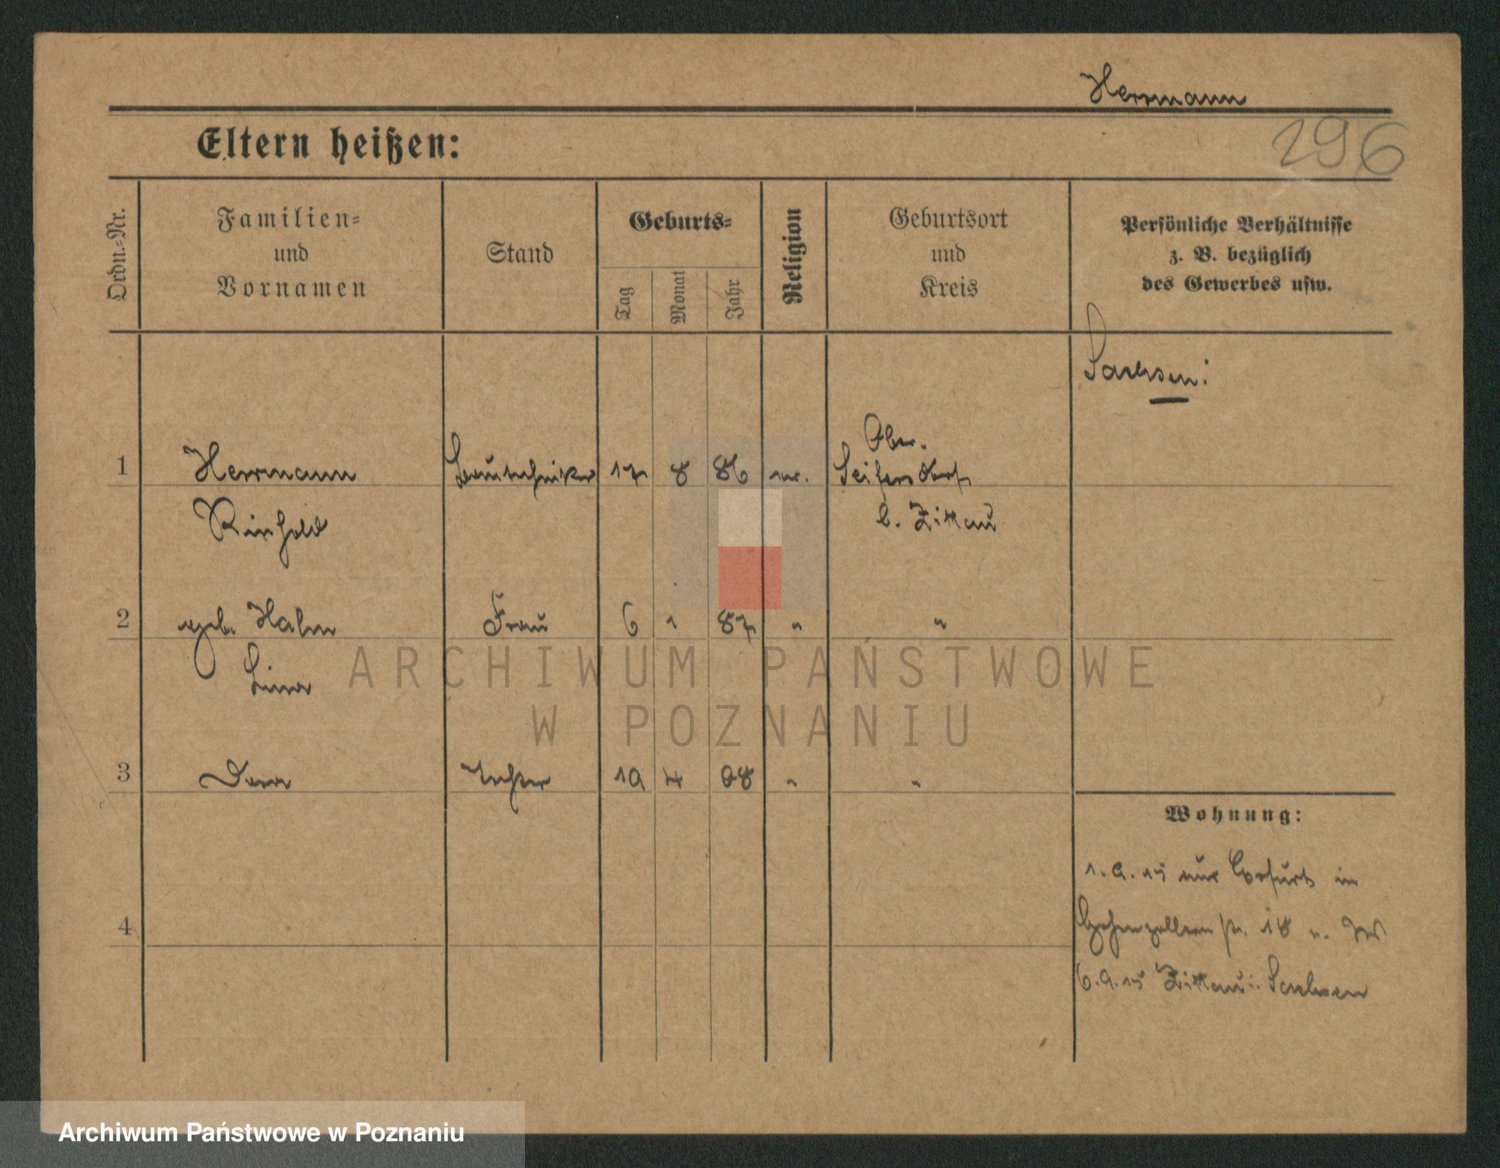 Herrmann
296
Eltern heißen:
Ordn.=Nr.
Familien=
und
Vornamen
Stand
Geburts=
Tag
Monat
Jahr
Religion
Geburtsort
und
Kreis
Persönliche Verhältnisse
z. B. bezüglich
des Gewerbes usw.
Sachsen:
1 Herrmann Bautechniker 17 8 86 ev. Ober-
Seifersdorf
Reinhold b. Zittau
2 geb. Hahn Frau 6 1 87 " "
Lina
ARCHIWUM PAŃSTWOWE
W POZNANIU
3 Dora Tochter 19 4 08 " "
Wohnung:
1.9.15 aus Erfurt in
4
Hohenzollern str. 18
6.9.15 Zittau i. Sachsen
Archiwum Państwowe w Poznaniu